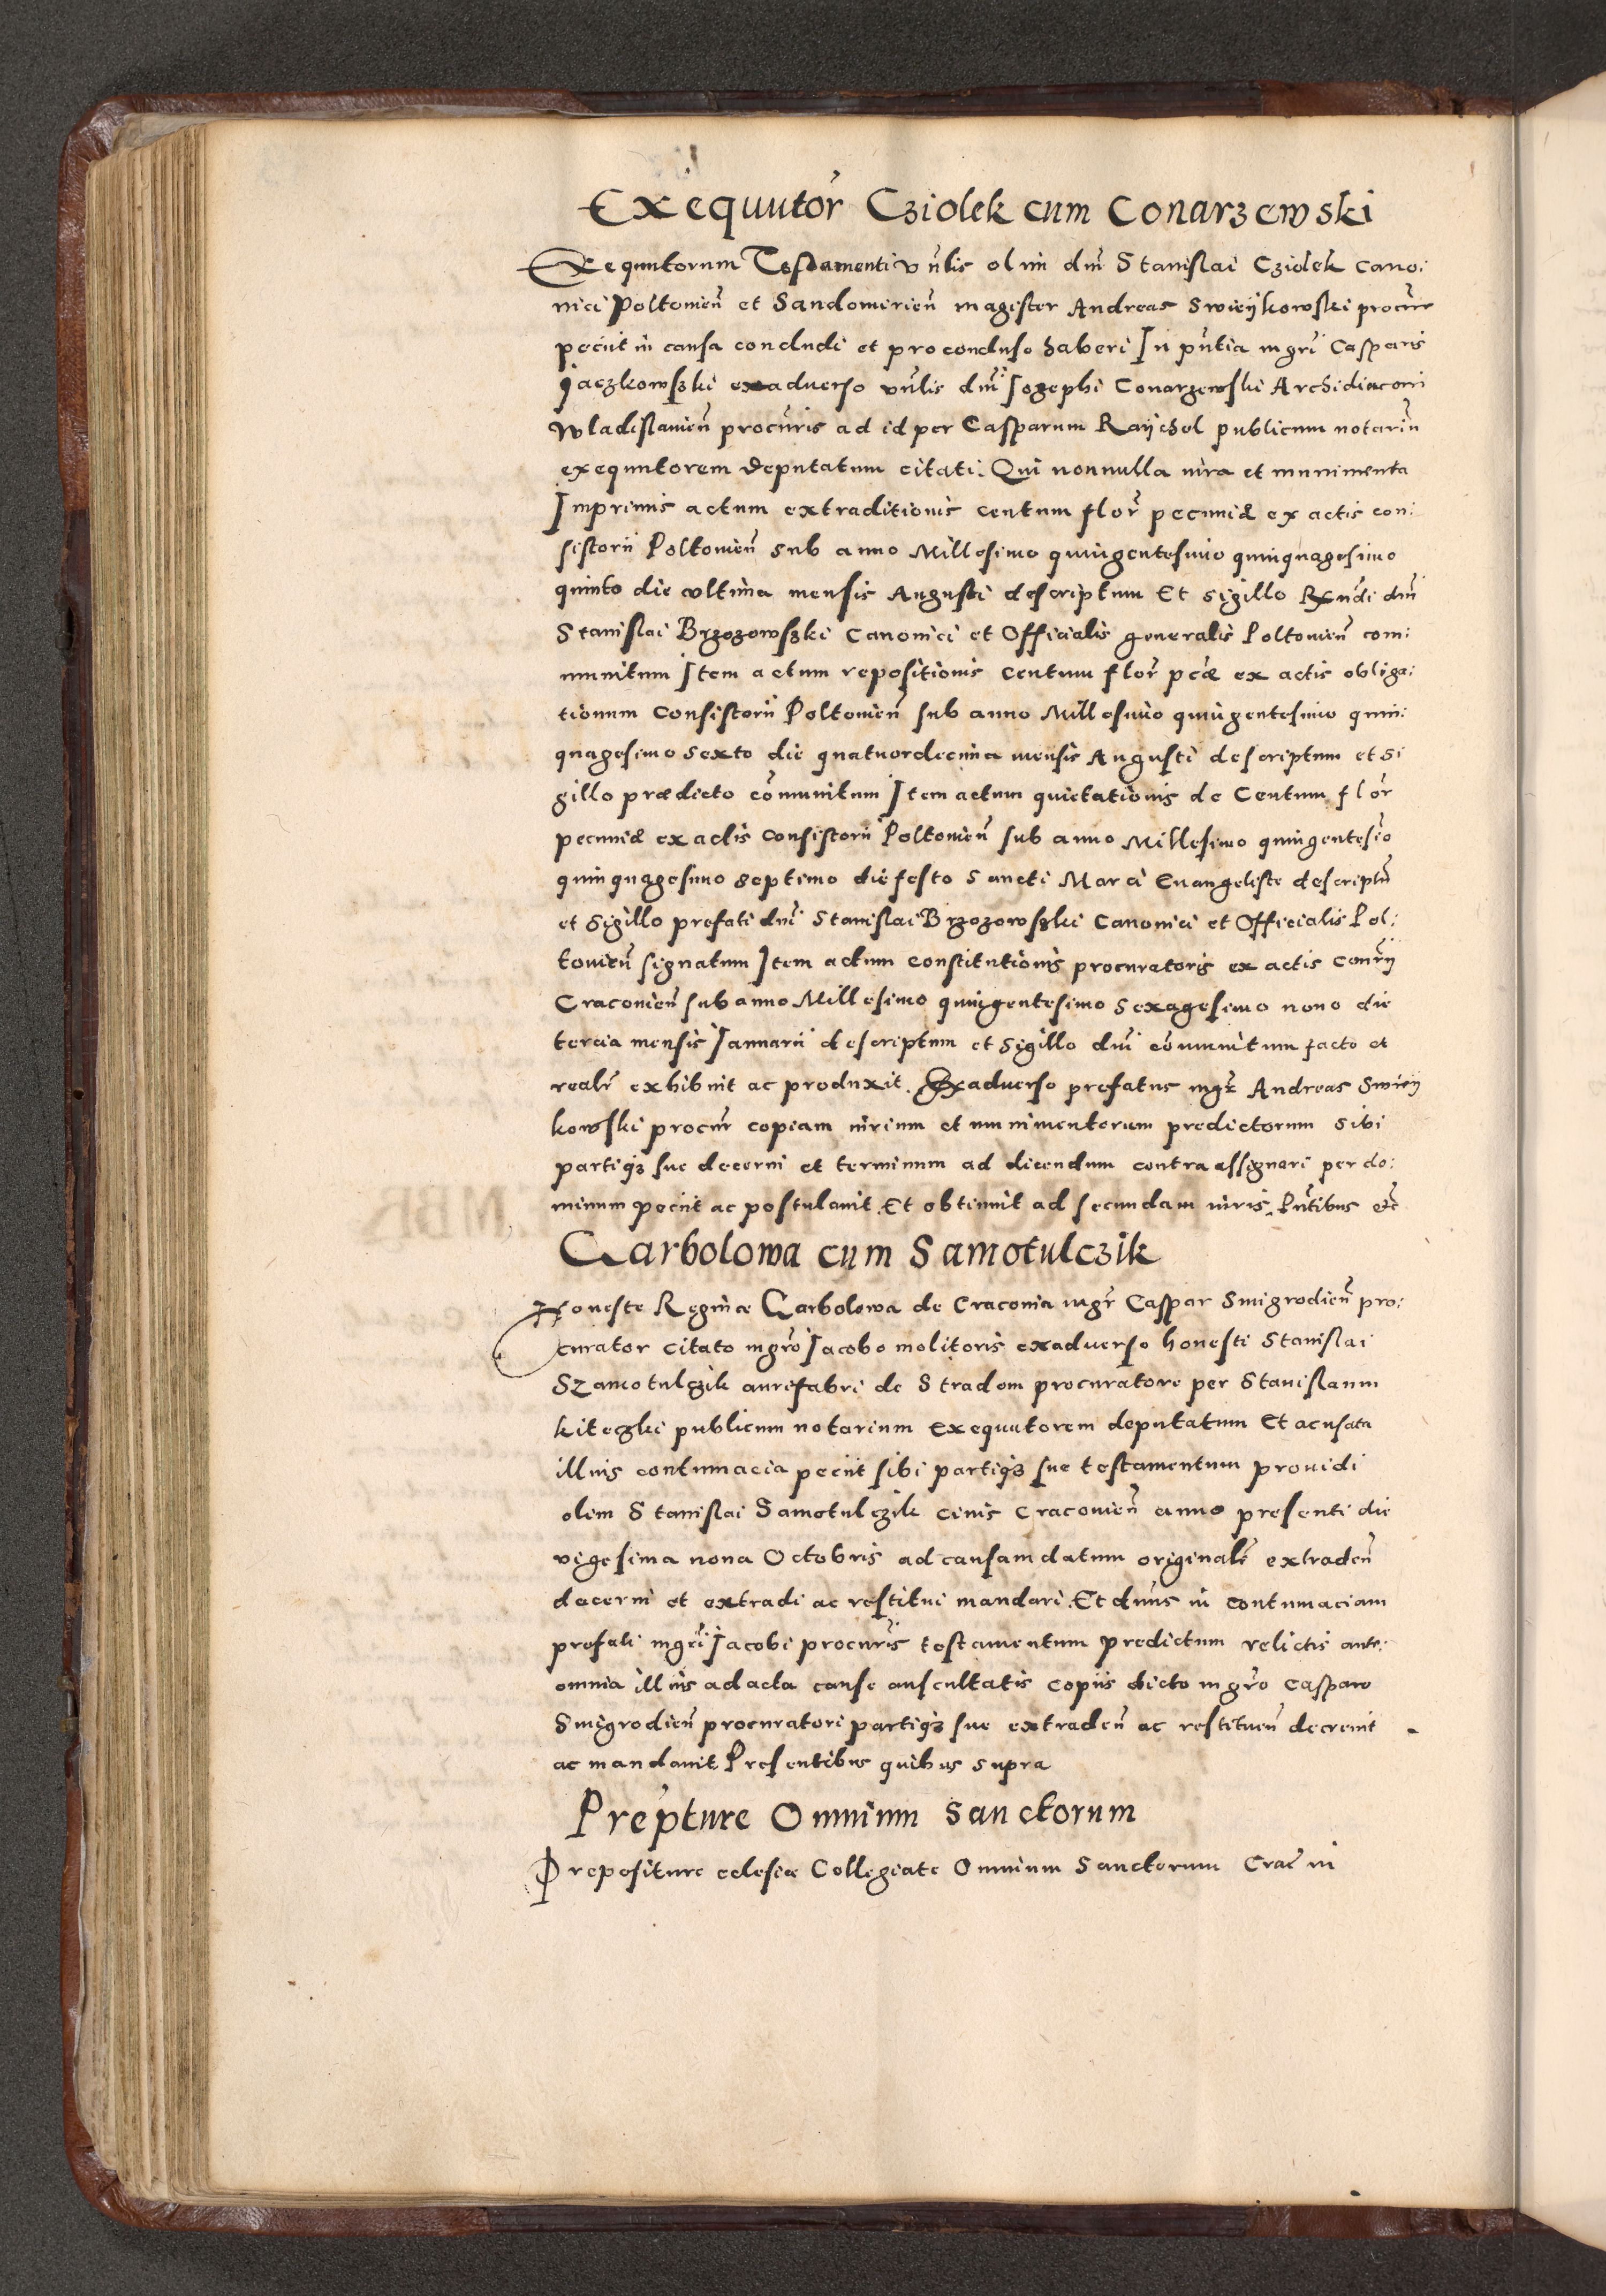 Exequutor̃ Cziolek cum Conarzewski
Exequutorum Testamenti vñlis olim dñi Stanislai Cziolek cano:
nici Poltovieñ et Sandomirieñ magister Andreas Swieykowski procur̃
peciit in causa concludi et pro concluso haberi In pñtia mgr̃i Casparis
Jaczkowski exadverso vñlis dñi Iozephi Conarzewski Archidiaconi
Wladislavieñ procur̃is ad id per Casparum Raychel publicum notariũ
exequutorem deputatum citati. Qui nonnulla iura et munimenta
Imprimis actum extraditionis centum flor̃ pecuniæ ex actis con:
sistorii Poltovieñ sub anno Millesimo quingentesimo quinquagesimo
quinto die vltima mensis Augusti descriptum Et sigillo Rẽndi dñi
Stanislai Brzozowski Canonici et Officialis generalis Poltovieñ com:
munitum Item actum repositionis centum flor̃ pẽcæ ex actis obliga:
tionum Consistorii Poltovieñ sub anno Millesimo quingentesimo quin:
quagesimo sexto die quatuordecima mensis Augusti descriptum et si
gillo prædicto cõmunitum Item actum quietationis de Centum flor̃
pecuniæ ex actis Consistorii Poltovieñ sub anno Millesimo quingentesi̇̃o
quinquagesimo septimo die festo Sancti Marci Euangeliste descriptũ
et Sigillo prefati dñi Stanislai Brzozowski Canonici et Officialis Pol:
tovieñ signatum Item actum constitutionis procuratoris ex actis Consr̃ij
Cracovieñ sub anno Millesimo quingentesimo sexagesimo nono die
tercia mensis Ianuarii descriptum et Sigillo dñi cõmunitum facto et
realr̃ exhibuit ac produxit. Exadverso prefatus mgr̃ Andreas Swiey
kowski procur̃ copiam iurium et munimentorum predictorum sibi
partiqз sue decerni et terminum ad dicendum contra assignari per do:
minum peciit ac postulavit. Et obtinuit ad secundam iuris. Pñtibus etc̃
Garbolowa cum Samotulczik
Honeste Reginæ Garbolowa de Cracovia mgr̃ Caspar Smigrodieñ pro:
curator citato mgr̃o Iacobo molitoris exadverso honesti Stanislai
Szamotulczik aurifabri de Stradom procuratore per Stanislaum
kiteczki publicum notarium Exequutorem deputatum Et acusata
illius contumacia peciit sibi partiqз sue testamentum providi
olim Stanislai Samotulczik civis Cracovieñ anno presenti die
vigesima nona Octobris ad causam datum originalẽ extradeñ
decerni et extradi ac restitui mandari. Et dñus in contumaciam
prefati mgr̃i Iacobi procur̃is testamentum predictum relictis ante:
omnia illius ad acta cause auscultatis copiis dicto mgr̃o Casparo
Smigrodieñ procuratori partiqз sue extradeñ ac restitueñ decrevit
ac mandavit. Presentibus quibus supra
Prep̃ture Omnium Sanctorum
Prepositure eclesiæ Collegiate Omnium Sanctorum Crac̃ in